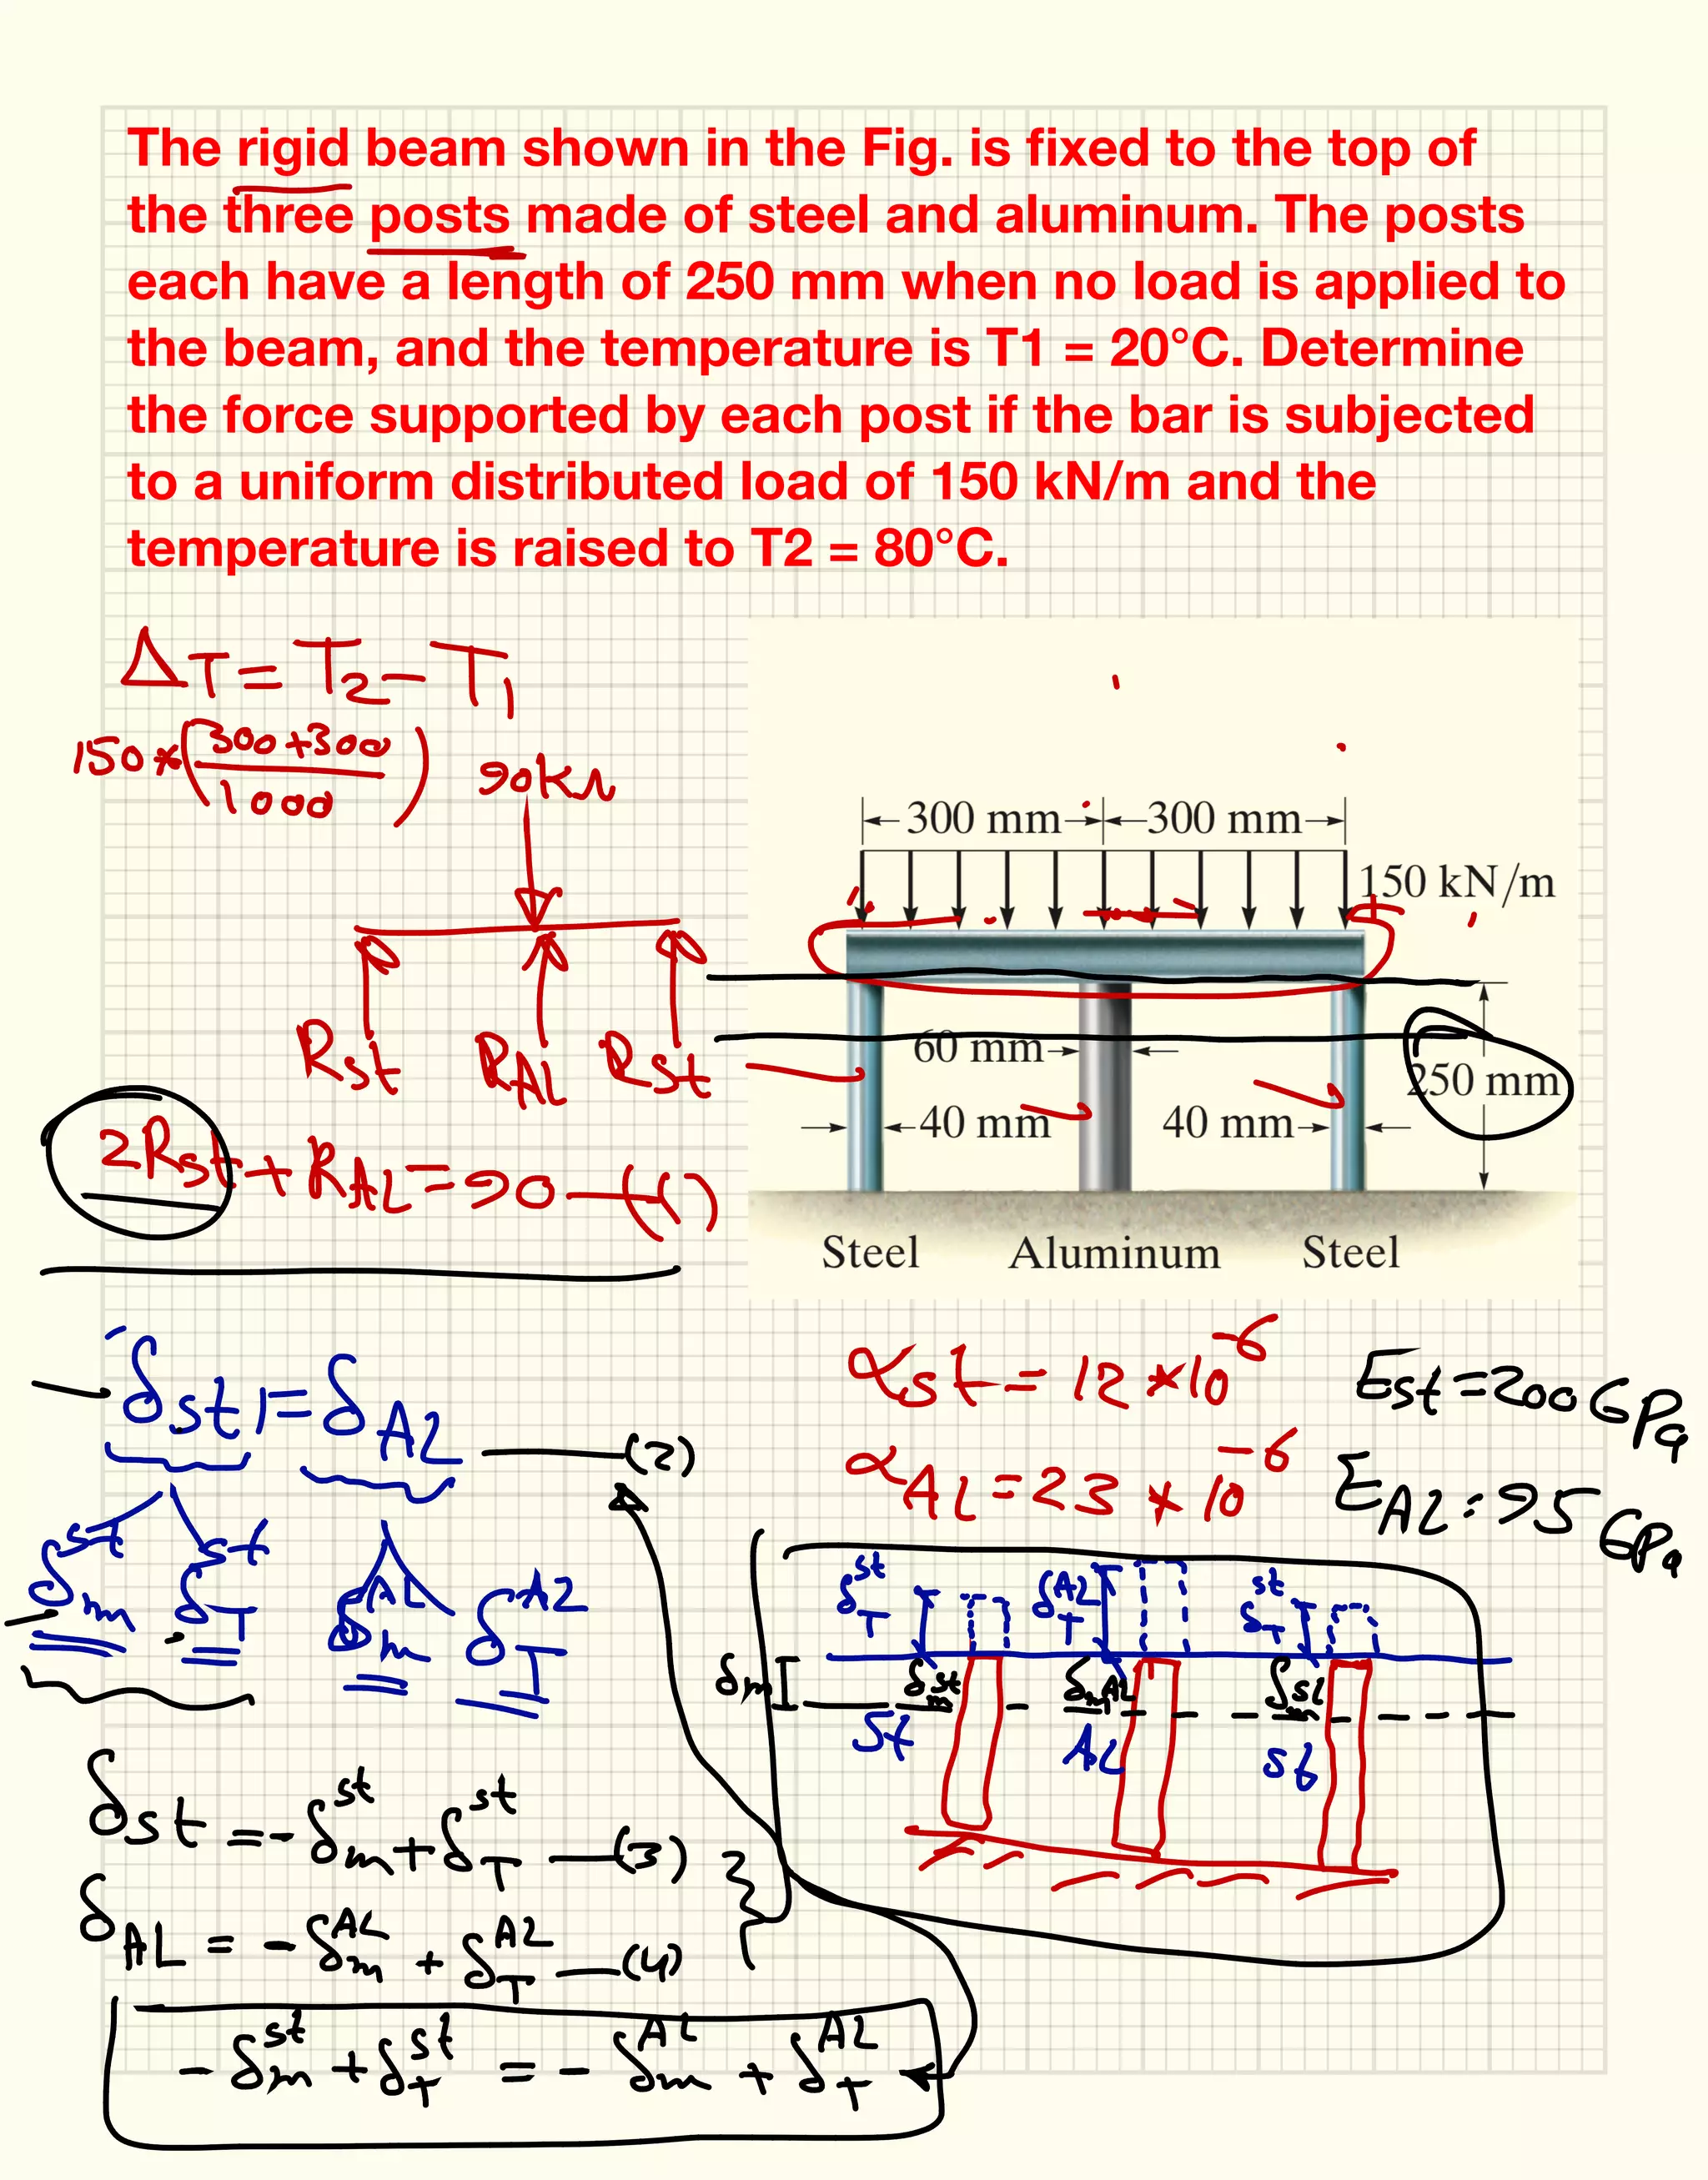 The rigid beam shown in the Fig. is fixed to the top of
the three posts made of steel and aluminum. The posts
each have a length of 250 mm when no load is applied to
the beam, and the temperature is T1 = 20°C. Determine
the force supported by each post if the bar is subjected
to a uniform distributed load of 150 kN/m and the
temperature is raised to T2 = 80°C.
ΔT = T₂ - T₁
150 * (300+300 / 1000)
90KN
Rst RAL Rst
2Rst + RAL = 90 —(1)
300 mm 300 mm
150 kN/m
60 mm
250 mm
40 mm 40 mm
Steel Aluminum Steel
δst = δAL —(2)
δm^st δT^st δm^AL δT^AL
αst = 12 * 10^-6 Est = 200 GPa
αAL = 23 * 10^-6 EAL = 95 GPa
δT^st δT^AL δT^st
δm δm^st δm^AL δm^st
St AL St
δst = -δm^st + δT^st —(3)
δAL = -δm^AL + δT^AL —(4)
-δm^st + δT^st = -δm^AL + δT^AL